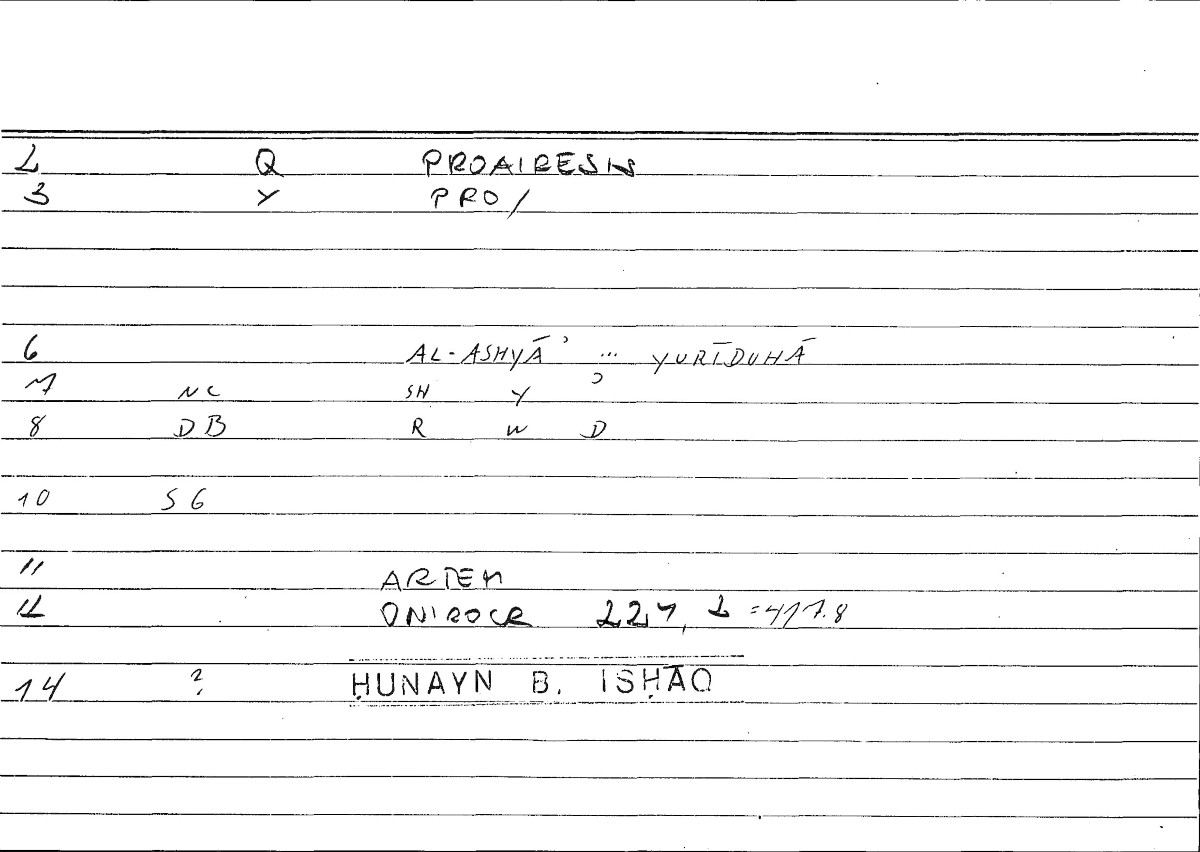 2 Q PROAIRESIN
3 Y PRO/
6 AL-ASHYĀʾ ... YURĪDUHĀ
7 NC SH Y ʾ
8 DB R W D
10 SG
11 ARTEM
12 ONIROCR 227, 2 =417.8
14 ? ḤUNAYN B. ISḤĀQ